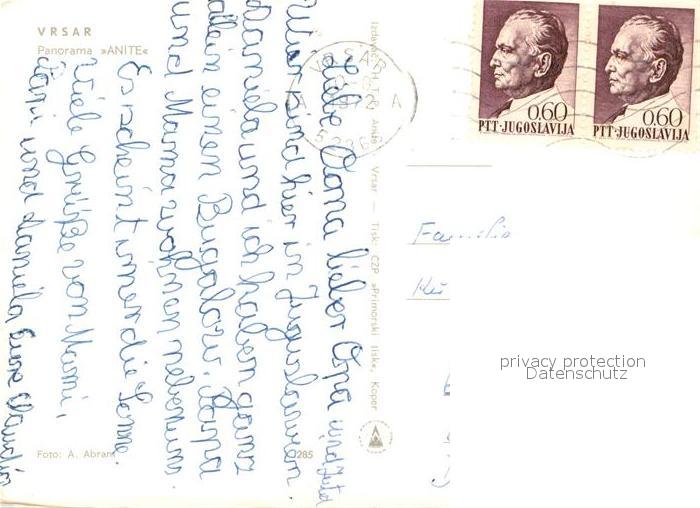 VRSAR
Panorama »ANITE«
Liebe Oma lieber Opa und Juta
Wir sind hier in Jugoslawien
Daniela und ich haben ganz
allein einen Bugalow. Papa
und Mama wohnen nebenan.
Es scheint imer die Sonne.
Viele Grüße von Mami,
Papi und Daniela Eure Claudia
Foto: A. Abram
285
Vrsar — Tisk: ČZP »Primorski tisk«, Koper
VRSAR
0.60
PTT·JUGOSLAVIJA
0.60
PTT·JUGOSLAVIJA
Familie
privacy protection
Datenschutz